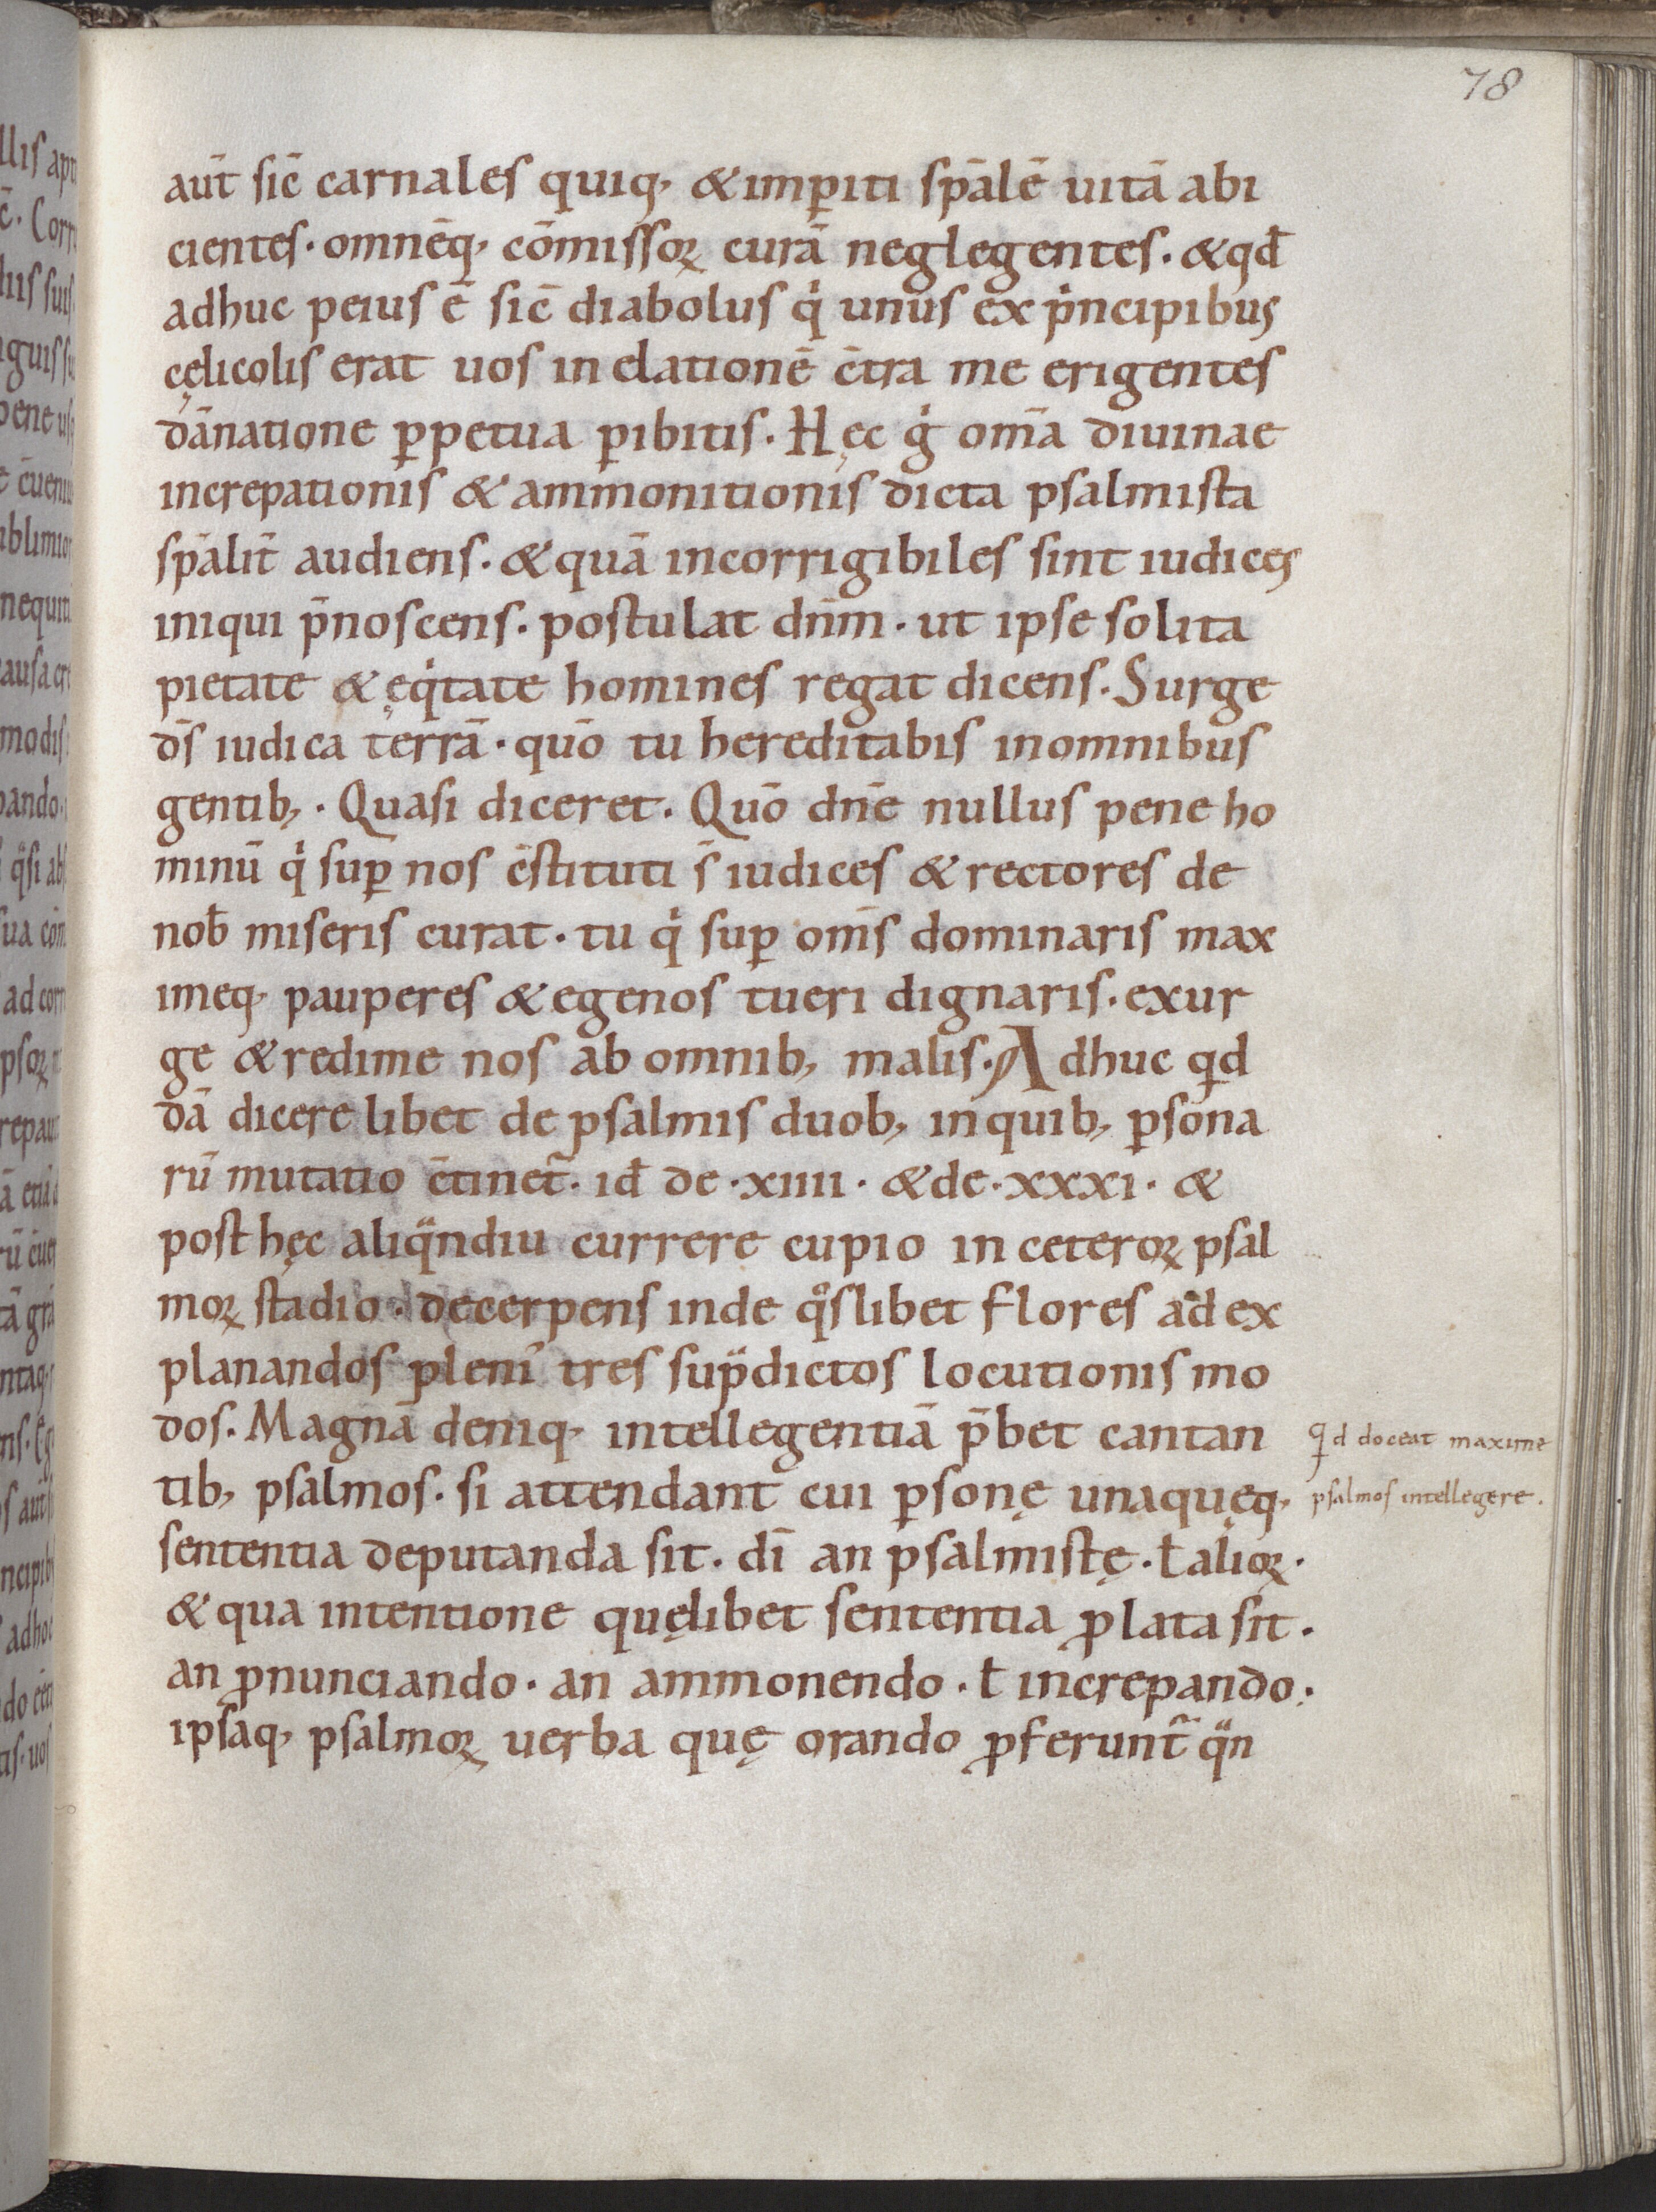 78
aut̄ sic̄ carnales quiq, & imꝑiti sp̄alē uitā abi
cientes · omnēq, cōmissoꝝ curā neglegentes · & qđ
adhuc peius ē sic̄ diabolus qͥ unus ex pͥncipibus
cęlicolis erat uos in elationē c̄tra me erigentes
dānatione ꝑpetua ꝑibitis · Hęc gͥ om̄a diuinae
increpationis & ammonitionis dicta psalmista
sp̄alit̄ audiens · & quā incorrigibiles sint iudices
iniqui p̄noscens · postulat dn̄m · ut ipse solita
pietate & ęqͥtate homines regat dicens · Surge
ds̄ iudica terrā · quō tu hereditabis in omnibus
gentib, · Quasi diceret · Quō dn̄e nullus pene ho
minū qͥ suꝑ nos c̄stituti s̄ iudices & rectores de
nob̄ miseris curat · tu qͥ suꝑ om̄s dominaris max
imeq, pauperes & egenos tueri dignaris · exur
ge & redime nos ab omnib, malis · Adhuc quꝺ
dā dicere libet de psalmis duob, in quib, ꝑsona
rū mutatio c̄tinet᷑ · iđ de · xiiii · & de · xxxi · &
post hęc aliqͣndiu currere cupio in ceteroꝝ psal
moꝝ stadio · decerpens inde qͦslibet flores ad ex
planandos pleni᷑ tres supͣdictos locutionis mo
dos · Magnā deniq, intellegentiā p̄bet cantan
tib, psalmos · si attendant cui ꝑsonę unaquęq,
sententia deputanda sit · dī an psalmistę · ł alioꝝ ·
& qua intentione quęlibet sententia ꝓlata sit ·
an ꝓnunciando · an ammonendo · ł increpando ·
ipsaq, psalmoꝝ uerba quę orando ꝓferunt᷑ qͣn
qd doceat maxime
psalmos intellegere.